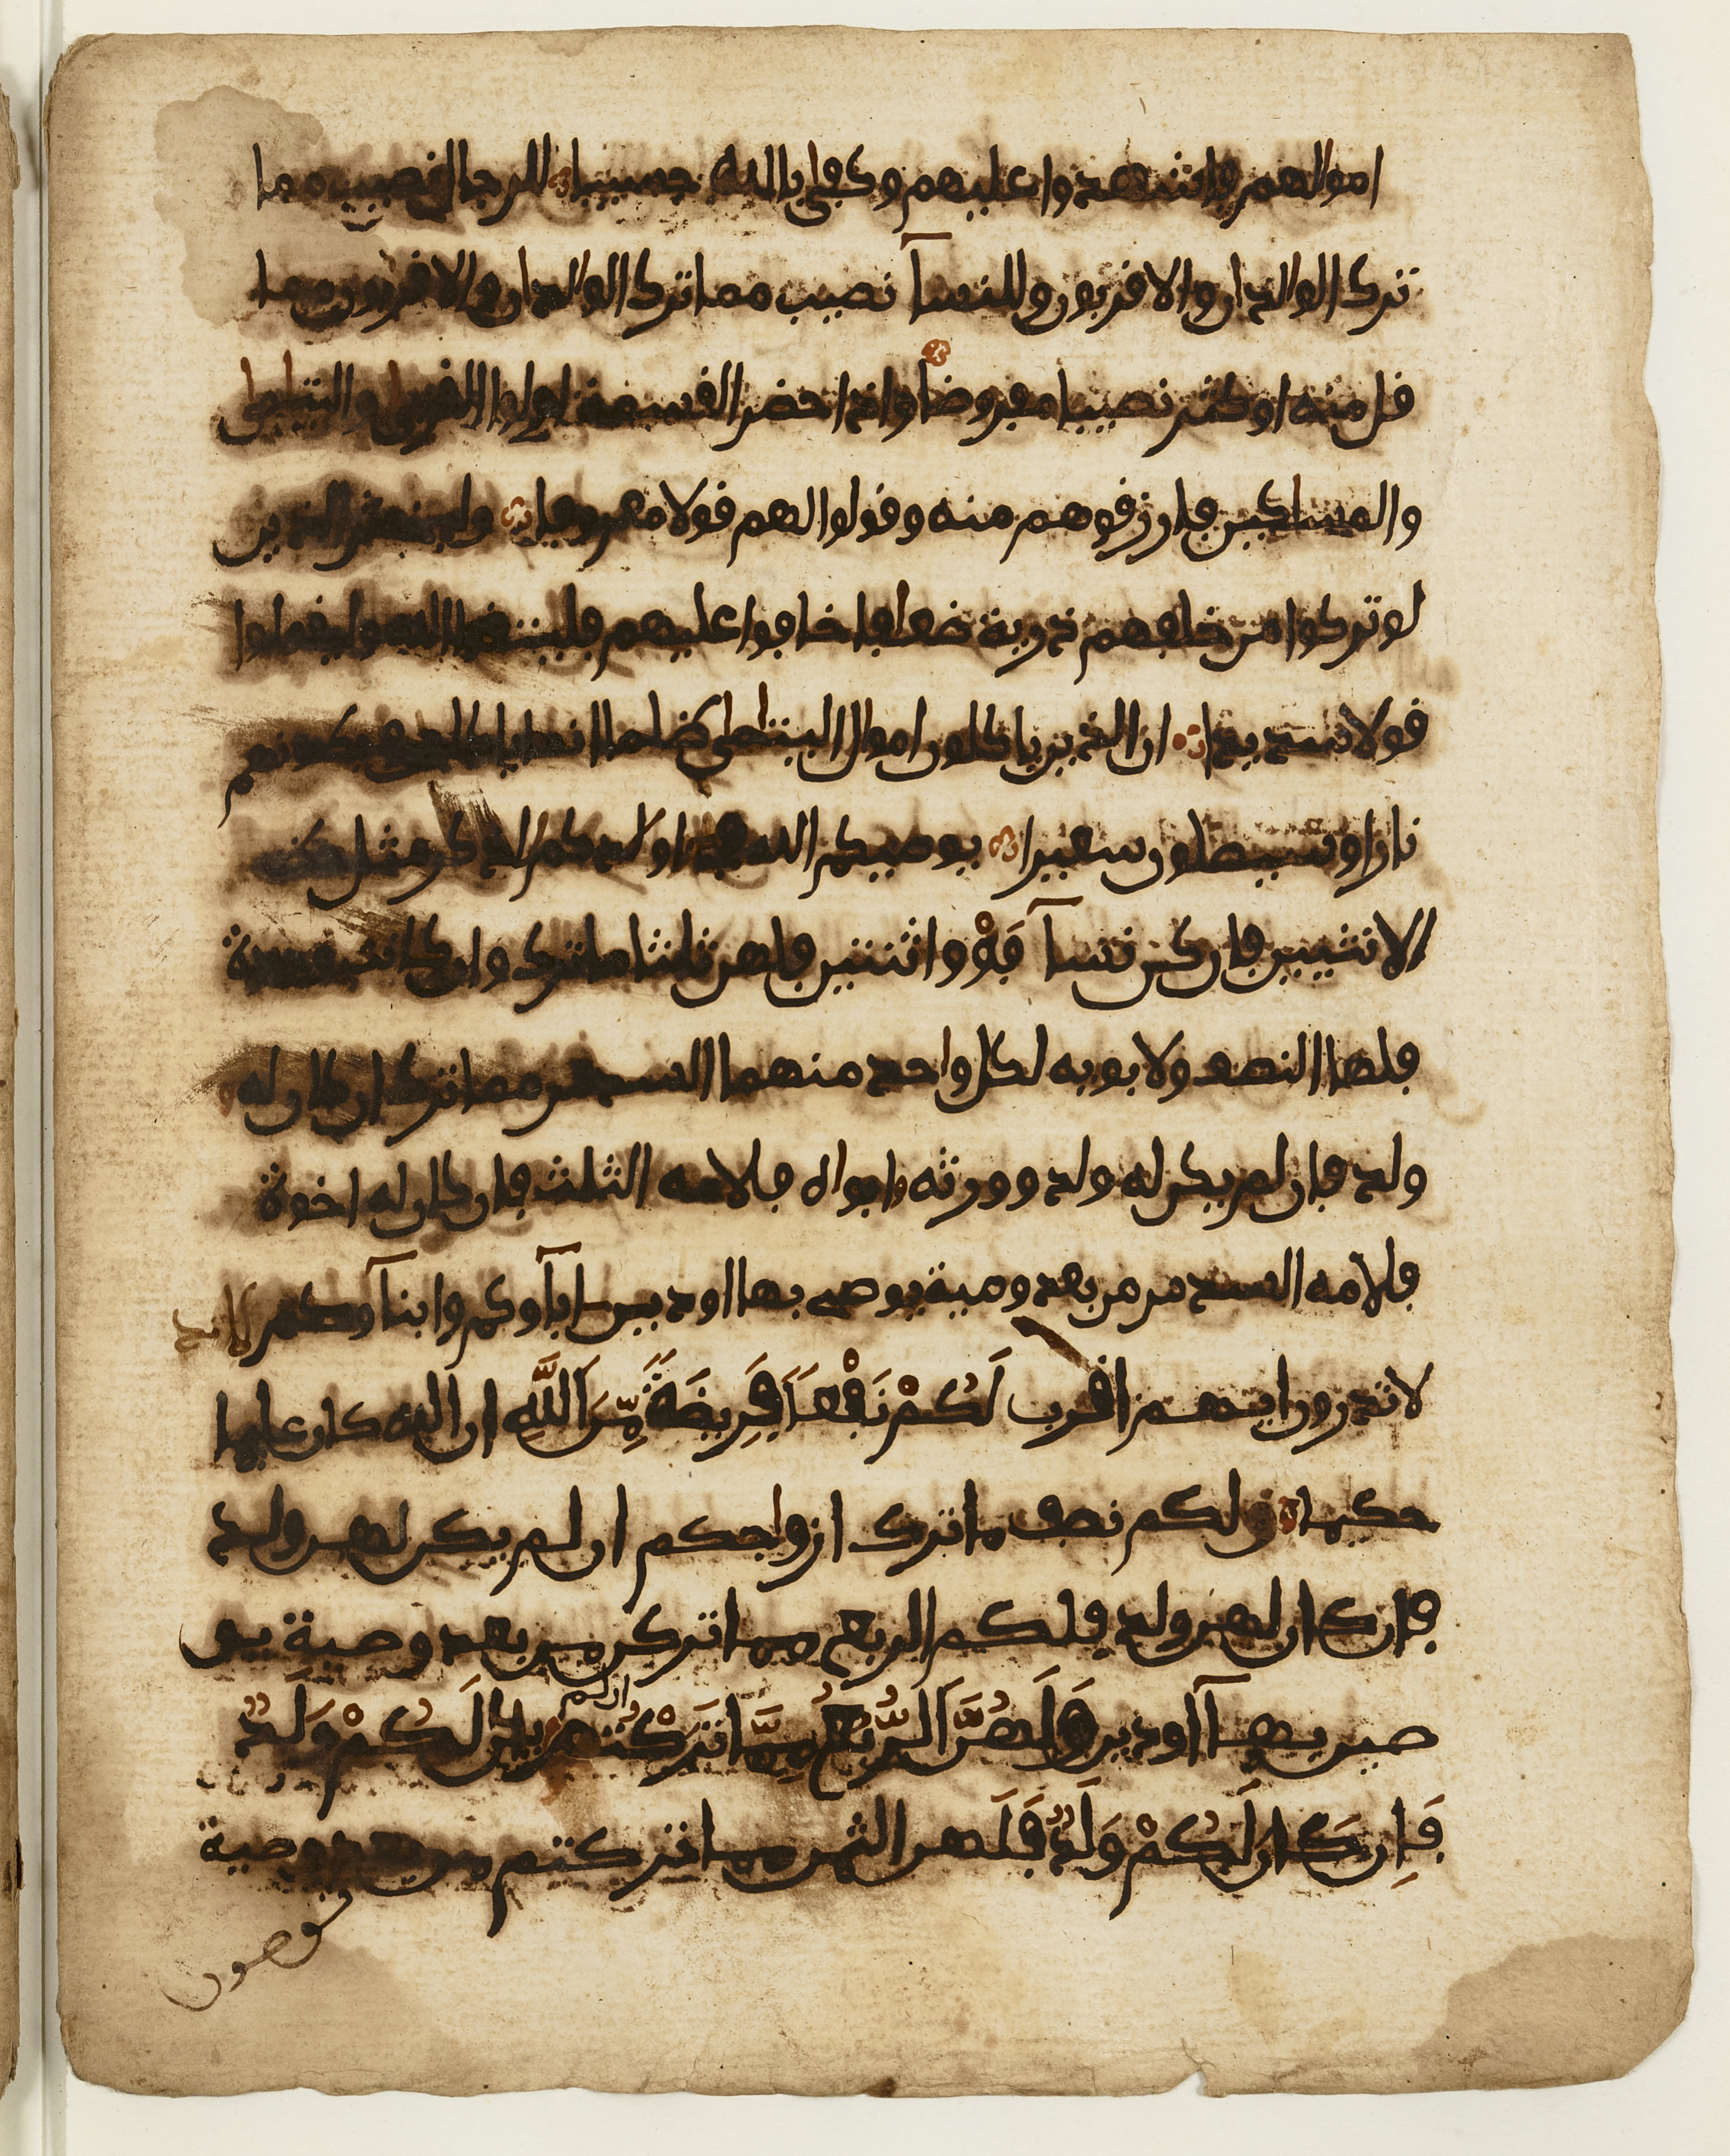 امولهم فاشهدوا عليهم وكفى بالله حسيبا للرجال نصيب مما
ترك الوالدان والاقربون وللنسآ نصيب مما ترك الوالدان والاقربون مما
قل منه او كثر نصيبا مفروضا واذا حضر القسمة اولوا القربى واليتامى
والمساكين فارزقوهم منه وقولوا لهم قولا معروفا وليخش الذين
لو تركوا من خلفهم ذرية ضعافا خافوا عليهم فليتقوا الله وليقولوا
قولا سديدا ان الذين ياكلون امول اليتامى ظلما انما ياكلون في بطونهم
نارا وسيصلون سعيرا يوصيكم الله في اولدكم للذكر مثل حظ
الانثيين فان كن نسآ فَوْق اثنتين فلهن ثلثا ما ترك وان كانت وحدة
فلها النصف ولابويه لكل واحد منهما السدس مما ترك ان كان له
ولد فان لم يكن له ولد وورثه ابواه فلامه الثلث فان كان له اخوة
فلامه السدس من بعد وصية يوصي بها او دين اباؤكم وابناؤكم لا تد
لا تدرون ايهم اقرب لَكُمْ نَفْعاً فَرِيضَةً مِّنَ اَللَّهِ ان الله كان عليما
حكيما ولكم نصف ما ترك ازواجكم ان لم يكن لهن ولد
فان كان لهن ولد فلكم الربع مما تركن من بعد وصية يو
صين بهآ او دين وَلَهُنَّ اَلرُّبُعُ مِمَّا تَرَكْتُمُ ان لم يكن لَكُمْ وَلَدٌ
فَإِن كَان لَكُمْ وَلَدٌ فَلَهن الثمن مما تركتم من بعد وصية
توصون